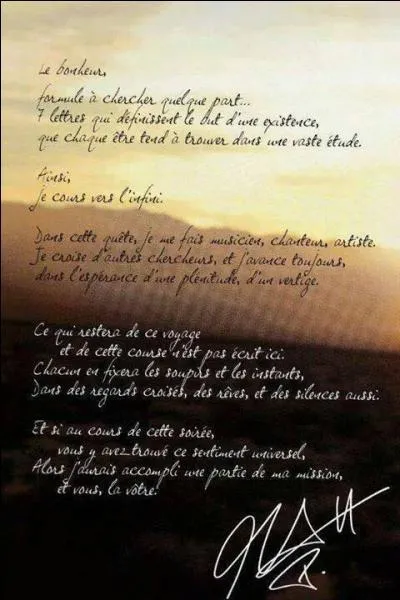 Le bonheur,
formule à chercher quelque part...
7 lettres qui définissent le but d'une existence,
que chaque être tend à trouver dans une vaste étude.
Ainsi,
je cours vers l'infini.
Dans cette quête, je me fais musicien, chanteur, artiste.
Je croise d'autres chercheurs, et j'avance toujours,
dans l'espérance d'une plénitude, d'un vertige.
Ce qui restera de ce voyage
et de cette course n'est pas écrit ici.
Chacun en fixera les soupirs et les instants,
Dans des regards croisés, des rêves, et des silences aussi.
Et si au cours de cette soirée,
vous y avez trouvé ce sentiment universel,
Alors j'aurais accompli une partie de ma mission,
et vous, la vôtre.